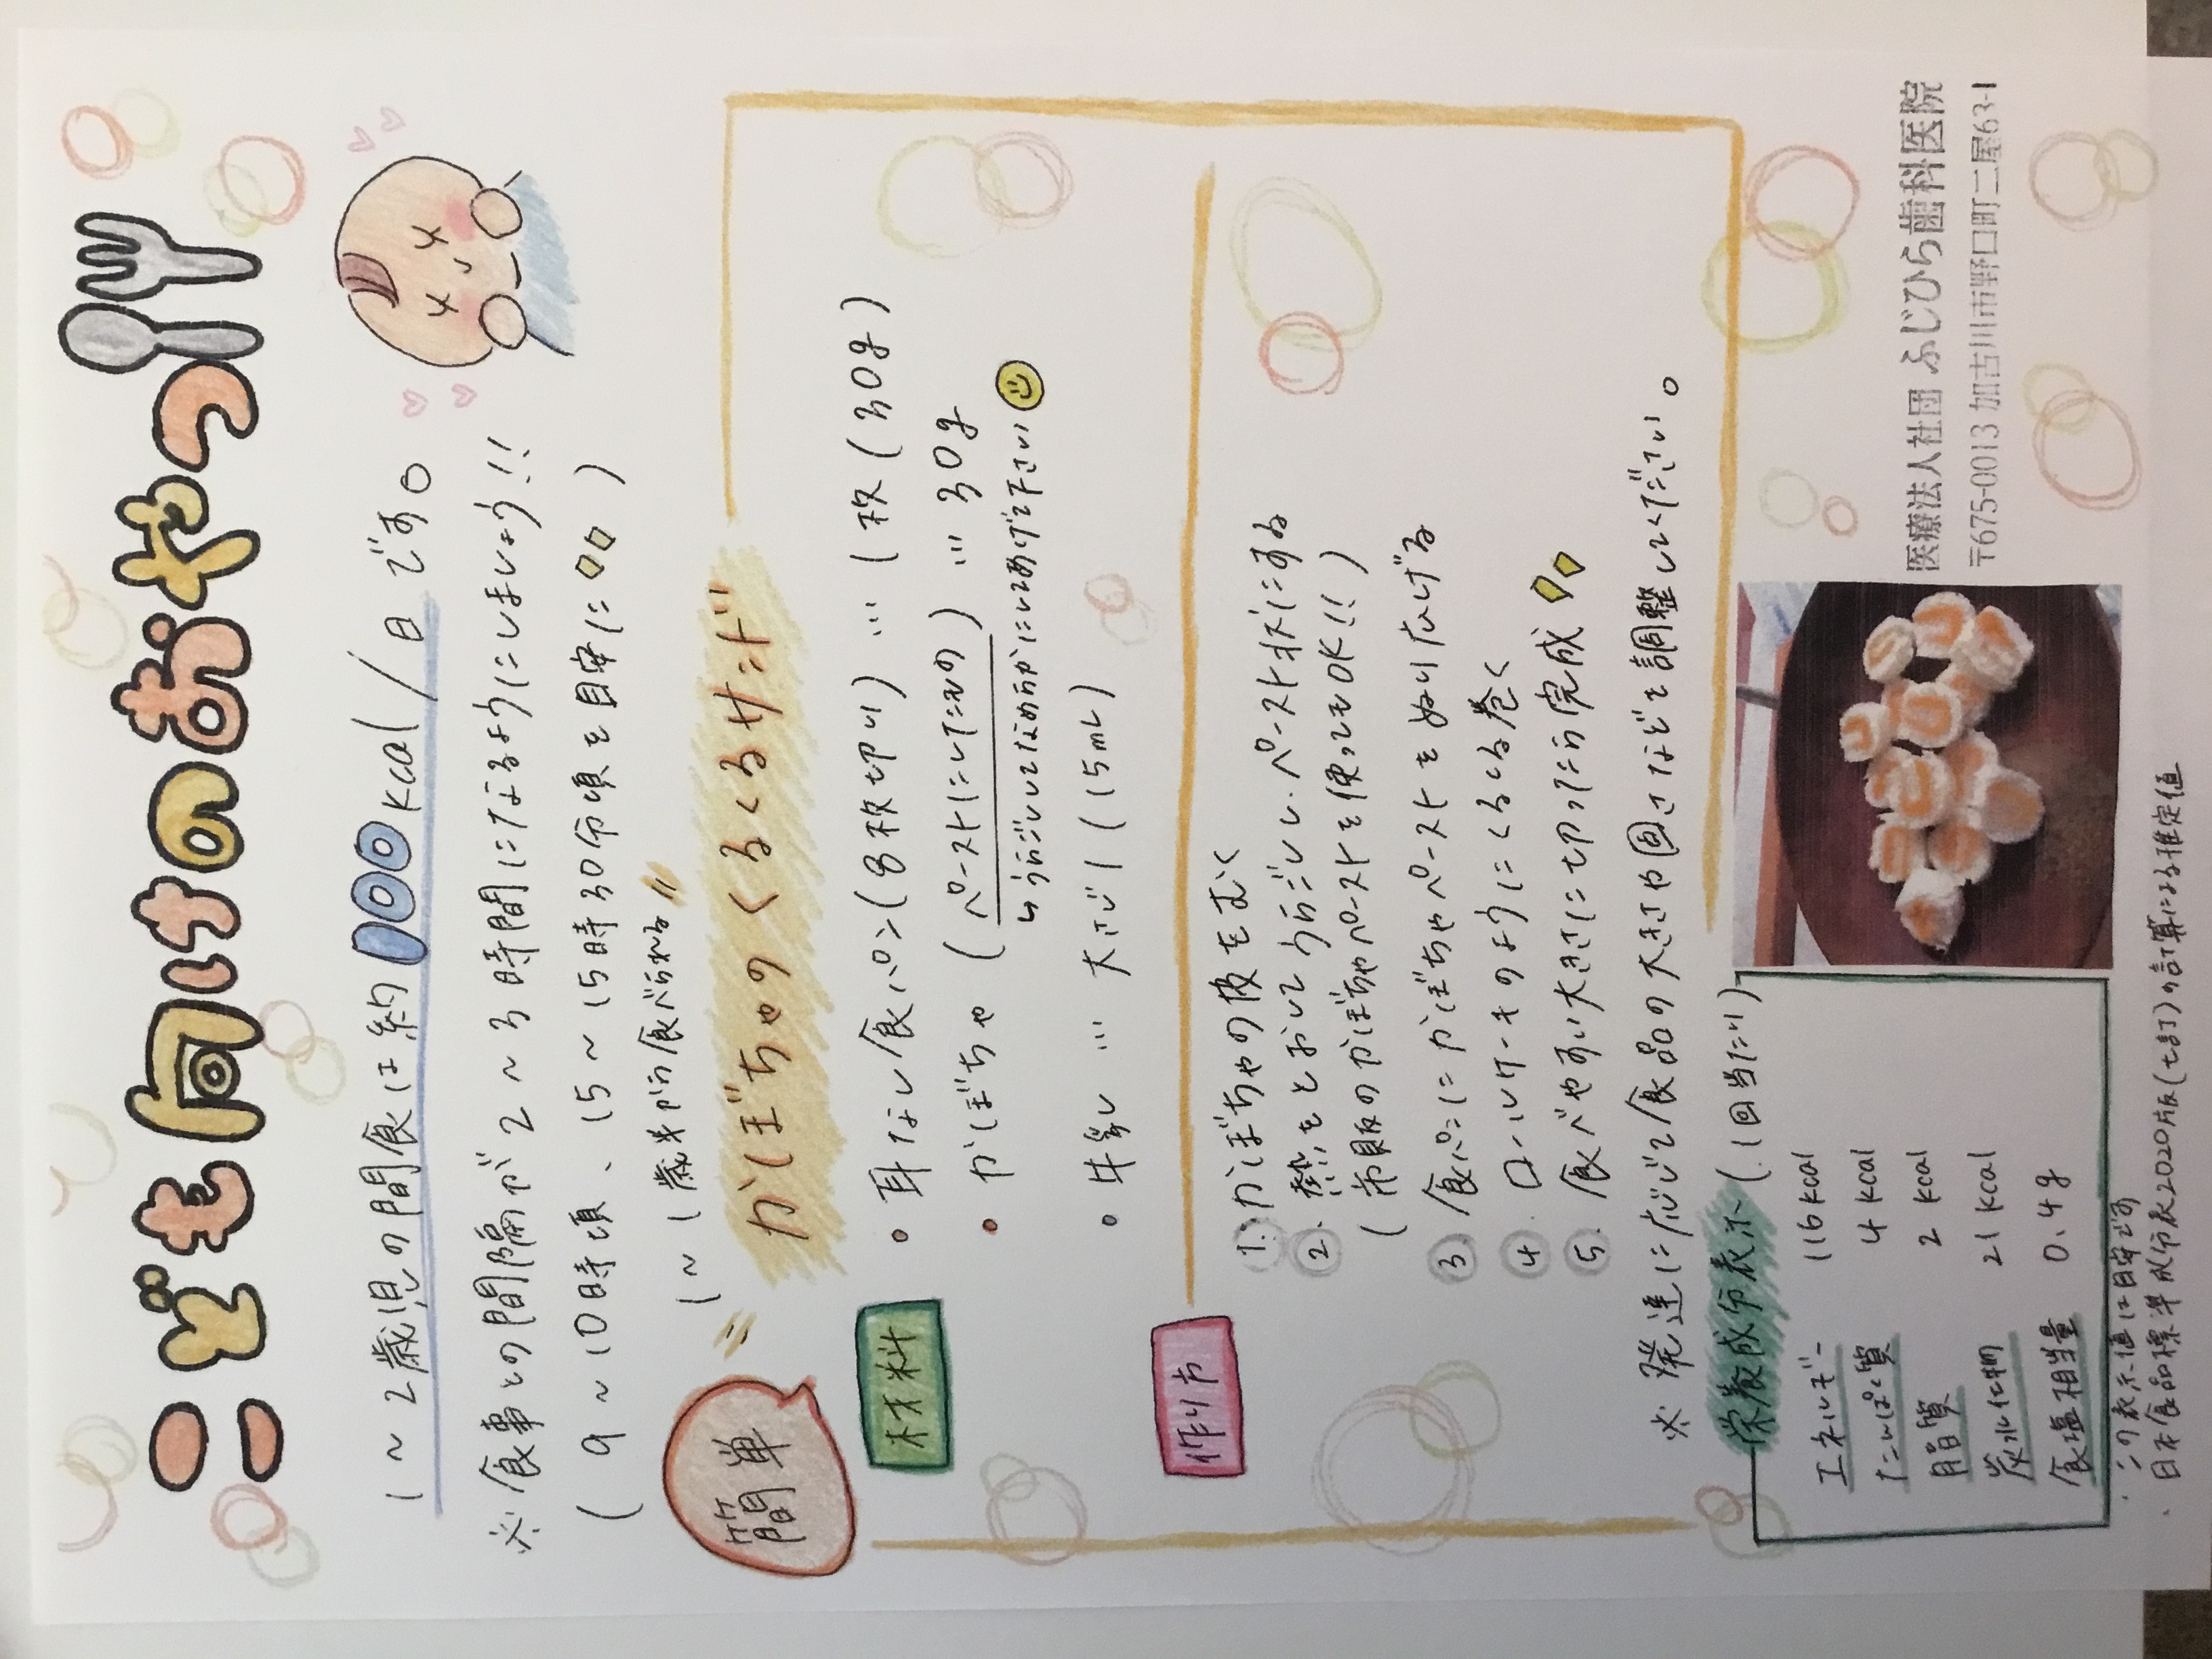 こども向けのおやつ
1～2歳児の間食は約100kcal/日です。
※食事との間隔が2～3時間になるようにしましょう!!
(9～10時頃、15～15時30分頃を目安に)
1～1歳半から食べられる
簡単
かぼちゃのくるくるサンド
材料
・耳なし食パン(8枚切り) … 1枚(30g)
・かぼちゃ(ペーストにしたもの) … 30g
↳うらごししてなめらかにしてあげて下さい
・牛乳 … 大さじ1(15mL)
作り方
1. かぼちゃの皮をむく
2. 熱をとおしてうらごしし、ペースト状にする
(市販のかぼちゃペーストを使ってもOK!!)
3. 食パンにかぼちゃペーストをぬり広げる
4. ロールケーキのようにくるくる巻く
5. 食べやすい大きさに切ったら完成
※発達に応じて食品の大きさや固さなどを調整してください。
栄養成分表示(1回当たり)
エネルギー 116kcal
たんぱく質 4kcal
脂質 2kcal
炭水化物 21kcal
食塩相当量 0.4g
・この表示値は目安です
・日本食品標準成分表2020年版(七訂)の計算による推定値
医療法人社団 ふじひら歯科医院
〒675-0013 加古川市野口町二屋63-1